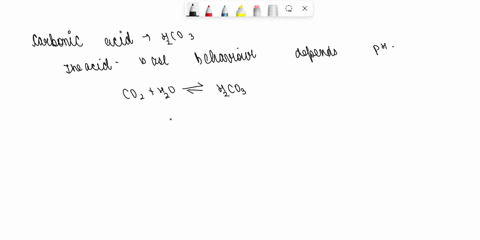 Carbonic acid → H2CO3
The acid - base behaviour depends pH.
CO2 + H2O ⇌ H2CO3